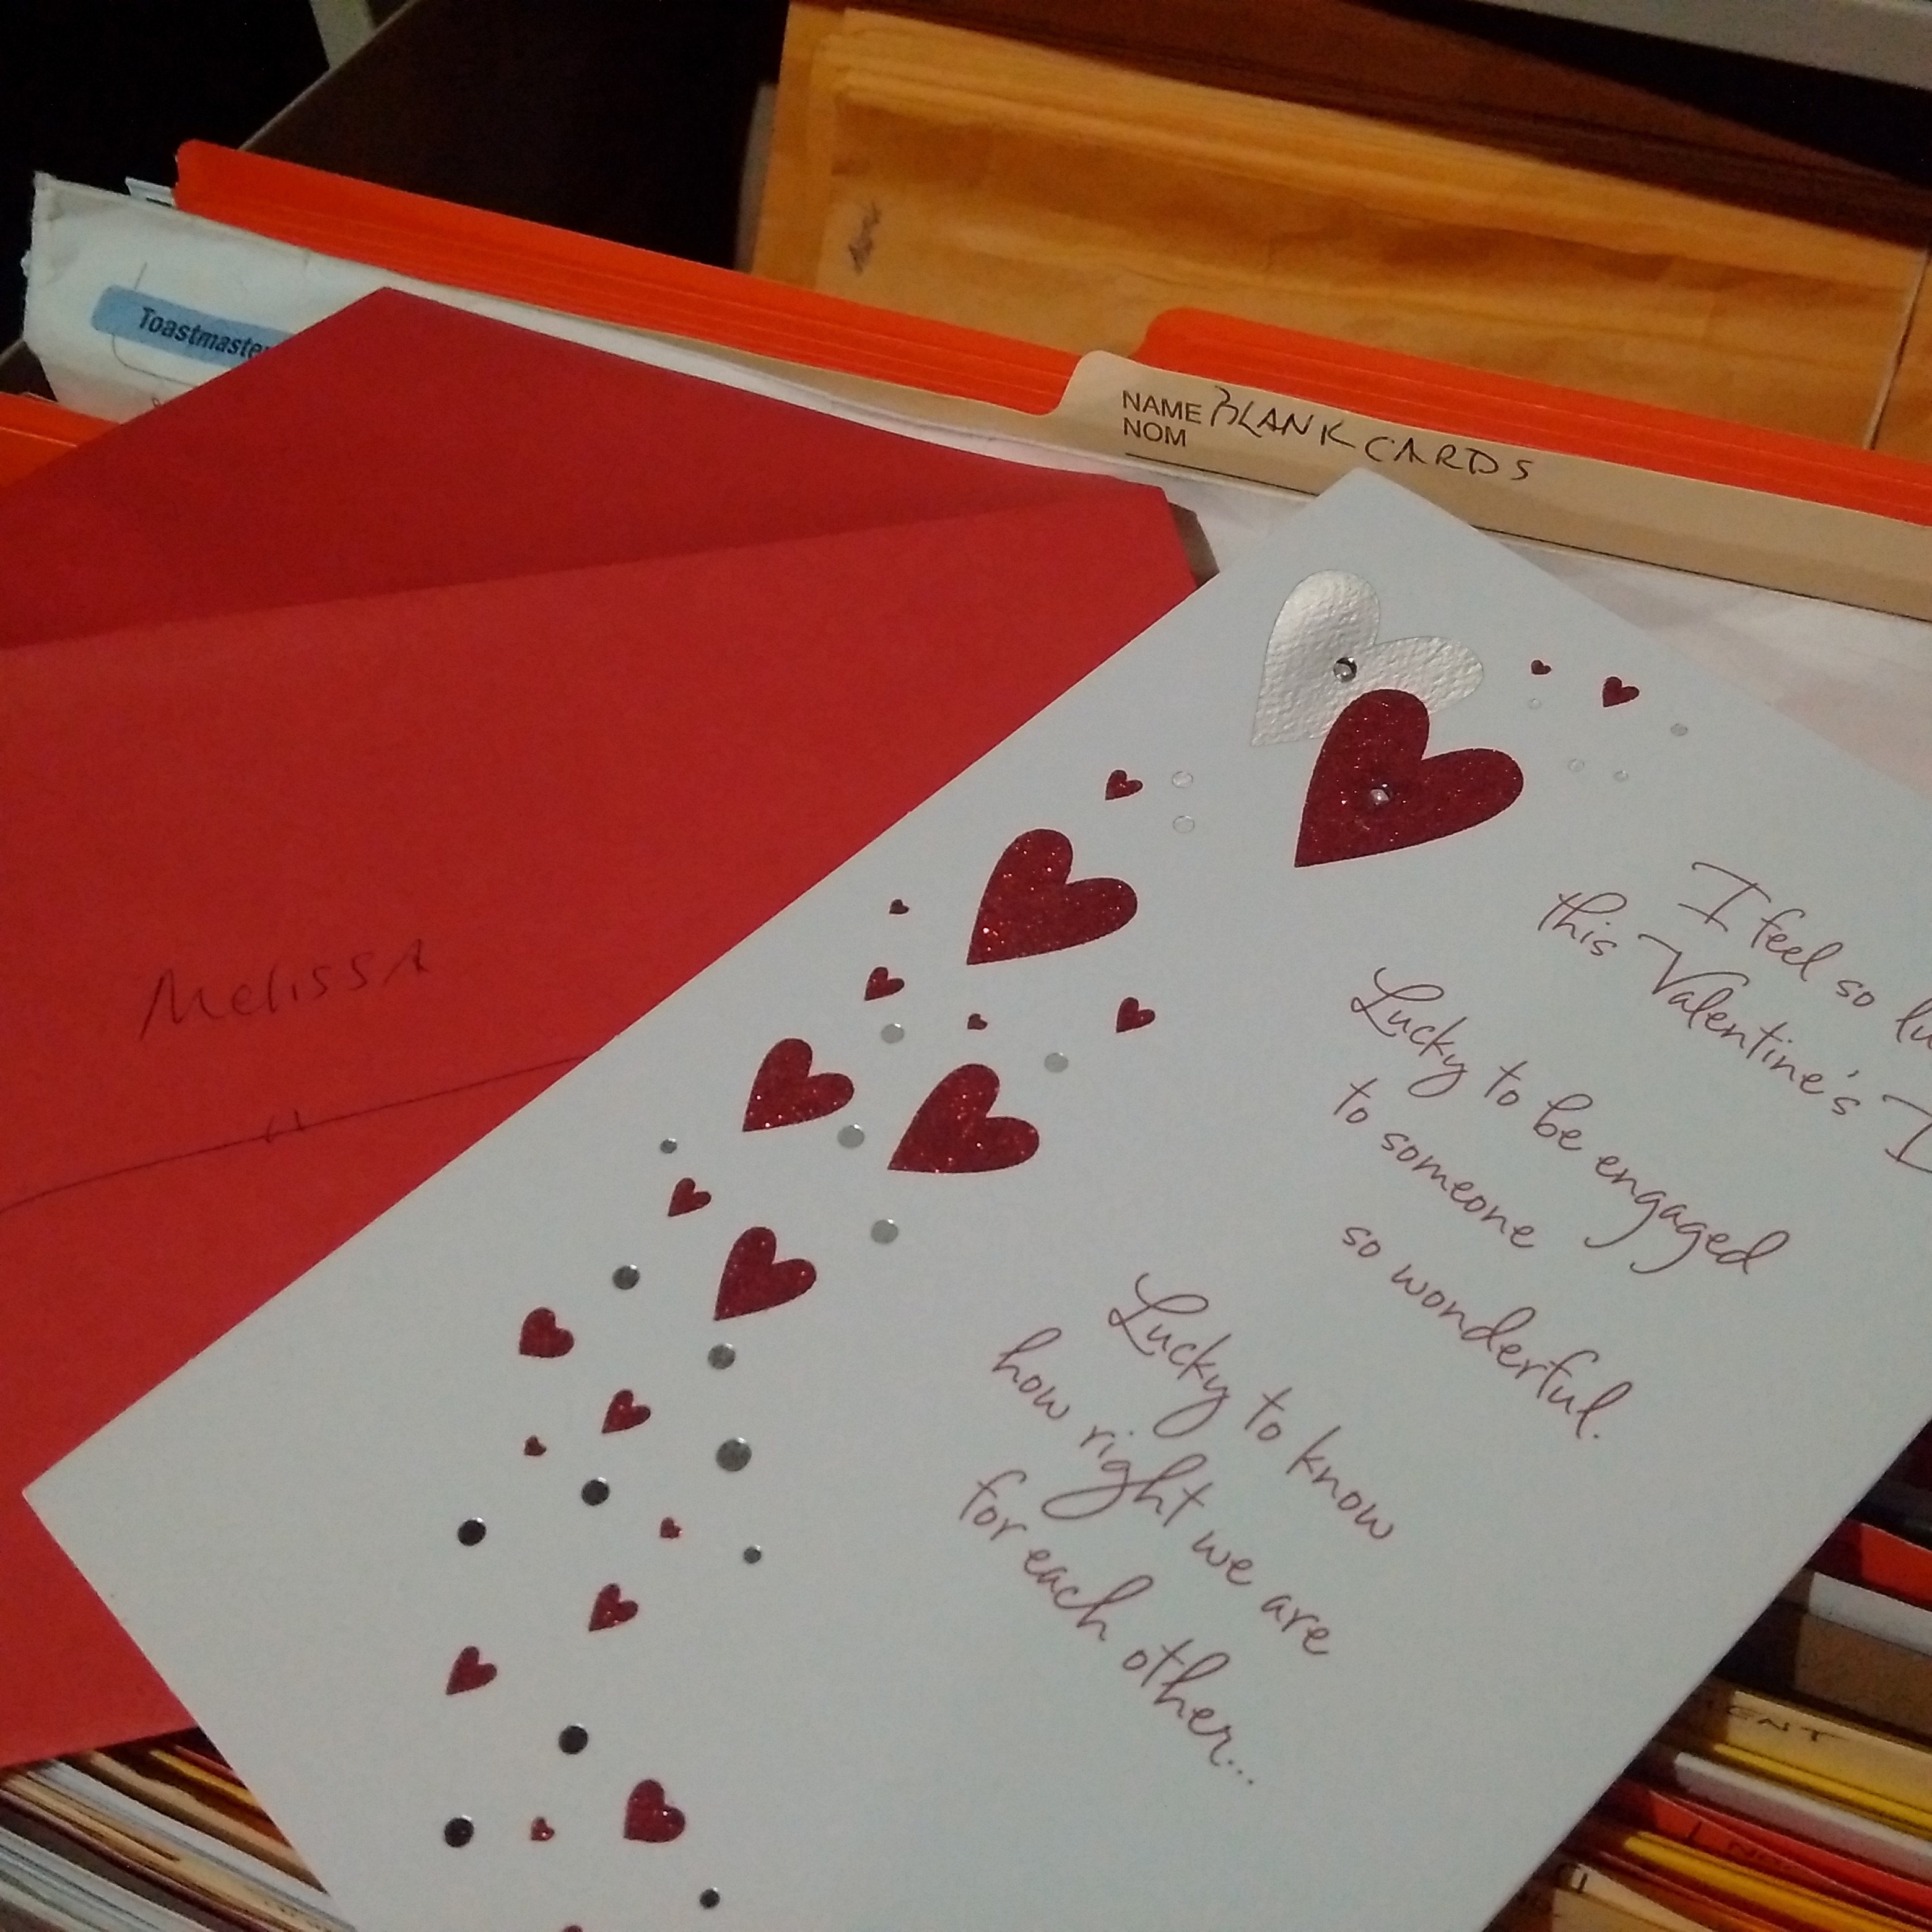 Toastmaster
NAME BLANK CARDS
NOM
Melissa
I feel so lu
this Valentine's D
Lucky to be engaged
to someone
so wonderful.
Lucky to know
how right we are
for each other...
ENT